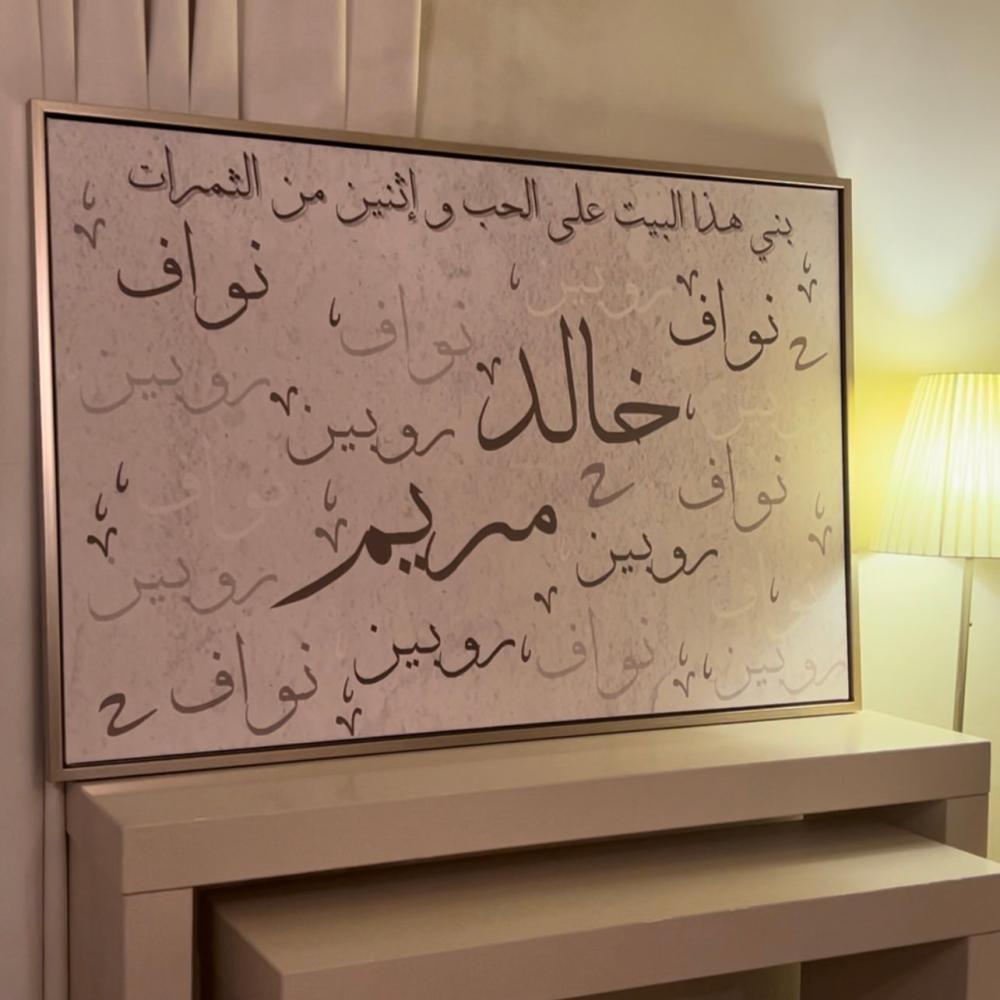 بني هذا البيت على الحب و إثنين من الثمرات
نواف
روبين
نواف
نواف
خالد
روبين
روبين
نواف
نواف
مريم
روبين
روبين
نواف
روبين
نواف
روبين